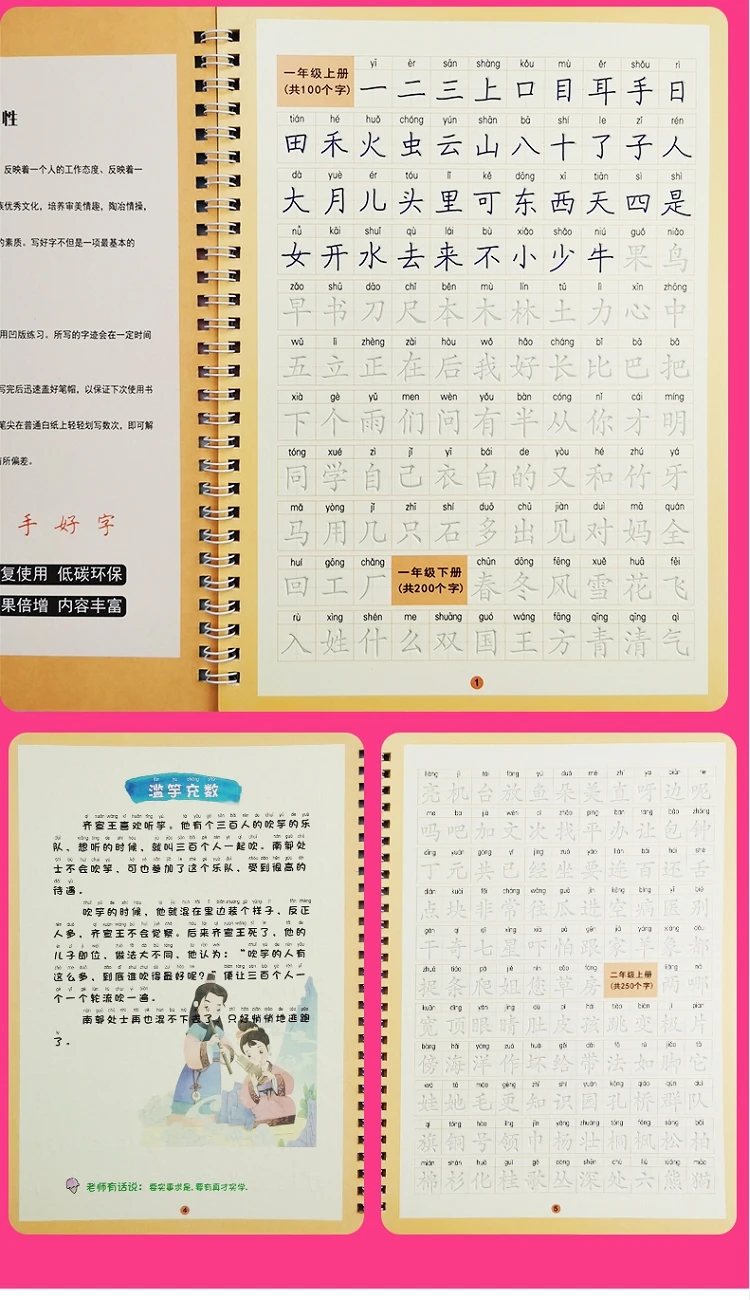 性
反映着一个人的工作态度、反映着一
族优秀文化，培养审美情趣，陶冶情操，
的素质。写好字不但是一项最基本的
用凹版练习。所写的字迹会在一定时间
写完后迅速盖好笔帽，以保证下次使用书
笔尖在普通白纸上轻轻划写数次，即可解
有所偏差。
手 好 字
复使用 低碳环保
果倍增 内容丰富
一年级上册
(共100个字)
yī èr sān shàng kǒu mù ěr shǒu rì
一 二 三 上 口 目 耳 手 日
tián hé huǒ chóng yún shān bā shí le zǐ rén
田 禾 火 虫 云 山 八 十 了 子 人
dà yuè ér tóu lǐ kě dōng xī tiān sì shì
大 月 儿 头 里 可 东 西 天 四 是
nǚ kāi shuǐ qù lái bù xiǎo shǎo niú guǒ niǎo
女 开 水 去 来 不 小 少 牛 果 鸟
zǎo shū dāo chǐ běn mù lín tǔ lì xīn zhōng
早 书 刀 尺 本 木 林 土 力 心 中
wǔ lì zhèng zài hòu wǒ hǎo cháng bǐ bā bǎ
五 立 正 在 后 我 好 长 比 巴 把
xià gè yǔ men wèn yǒu bàn cóng nǐ cái míng
下 个 雨 们 问 有 半 从 你 才 明
tóng xué zì jǐ yī bái de yòu hé zhú yá
同 学 自 己 衣 白 的 又 和 竹 牙
mǎ yòng jǐ zhī shí duō chū jiàn duì mā quán
马 用 几 只 石 多 出 见 对 妈 全
huí gōng chǎng
回 工 厂
一年级下册
(共200个字)
chūn dōng fēng xuě huā fēi
春 冬 风 雪 花 飞
rù xìng shén me shuāng guó wáng fāng qīng qīng qì
入 姓 什 么 双 国 王 方 青 清 气
1
滥竽充数
齐宣王喜欢听竽。他有个三百人的吹竽的乐
队，想听的时候，就叫三百个人一起吹。南郭处
士不会吹竽，可也参加了这个乐队，受到很高的
待遇。
吹竽的时候，他就混在里边装个样子，反正
人多，齐宣王不会觉察。后来齐宣王死了，他的
儿子即位，做法大不同，他认为："吹竽的人有
这么多，到底谁吹得最好呢？"便让三百个人一
个一个轮流吹一遍。
南郭处士再也混不下去了，只好悄悄地逃跑
了。
老师有话说：要实事求是，要有真才实学。
4
亮 机 台 放 鱼 朵 美 直 呀 边 呢
吗 吧 加 文 次 找 平 办 让 包 钟
丁 元 共 已 经 坐 要 连 百 还 舌
点 块 非 常 往 瓜 进 空 病 医 别
干 奇 七 星 吓 怕 跟 家 羊
捉 条 爬 姐 您 草 房
二年级上册
(共250个字)
两 哪
宽 顶 眼 睛 肚 皮 孩 跳 变 极 片
傍 海 洋 作 坏 给 带 法 如 脚 它
娃 她 毛 更 知 识 园 孔 桥 群 队
旗 铜 号 领 巾 杨 壮 桐 枫 松 柏
棉 杉 化 桂 歌 丛 深 处 六 熊 猫
5